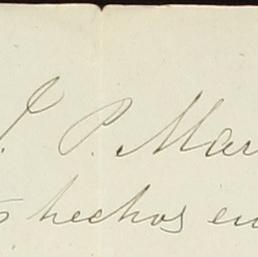 J. P. Mar
hechos en